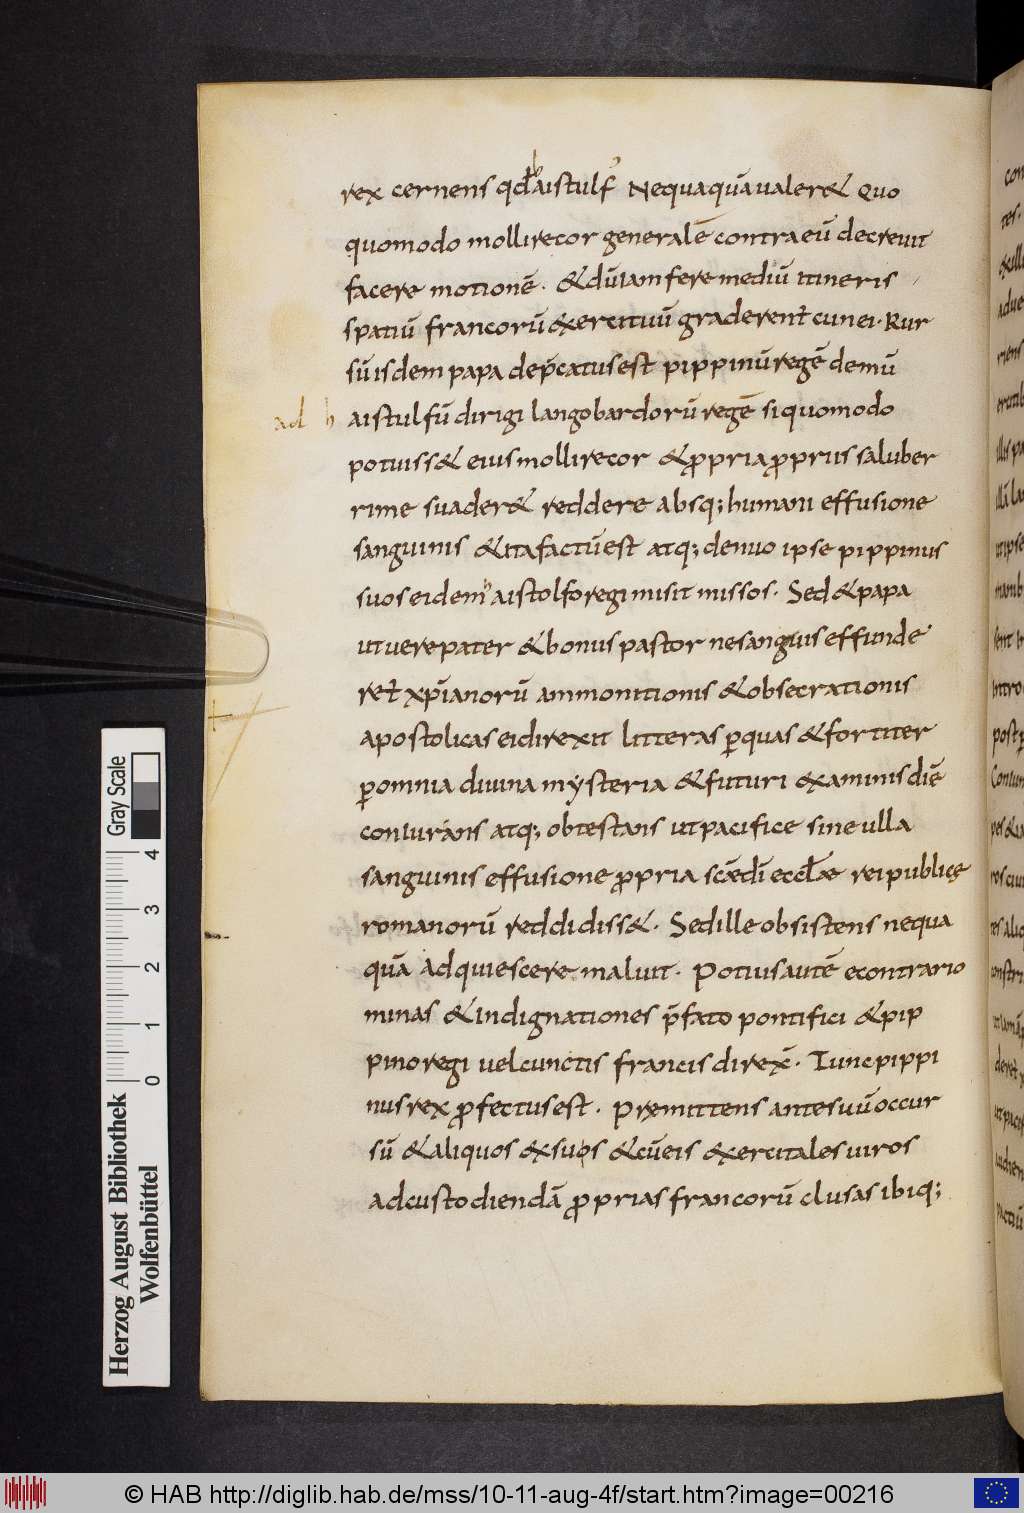 rex cernens qđ aistulf᾽ Nequaquā ualer& quo
quomodo molliri cor generalē contra eū decreuit
facere motionē. &dū iam fere mediū itineris
spatiū francorū exercituū graderent̄ cunei. Rur
sū isdem papa dep̄catus est pippinū regē demū
ad h
aistulfū dirigi langobardorū regē si quomodo
potuiss& eius molliri cor &ꝓpria ꝓpriis saluber
rime suader& reddere absq; humani effusione
sanguinis &ita factū est atq; denuo ipse pippinus
suos eidem haistolfo regi misit missos. Sed &papa
ut uere pater &bonus pastor ne sanguis effunde
ret̄ xp̄ianorū ammonitionis &obsecrationis
apostolicas ei direxit litteras ꝑquas &fortiter
ꝑomnia diuina mysteria &futuri examinis diē
coniurans atq; obtestans ut pacifice sine ulla
sanguinis effusione ꝓpria scæ dī eccłæ rei publicę
romanorū reddidiss&. Sed ille obsistens nequa
quā adquiescere maluit. Potius autē econtrario
minas &indignationes p̄fato pontifici &pip
pino regi uel cunctis francis direx̄. Tunc pippi
nus rex ꝓfectus est. Premittens ante suū occur
sū &aliquos ex suos &cū eis exercitales uiros
ad custodiendā ꝓprias francorū clusas ibiq;
Herzog August Bibliothek
Wolfenbüttel
Gray Scale
0 1 2 3 4
© HAB http://diglib.hab.de/mss/10-11-aug-4f/start.htm?image=00216